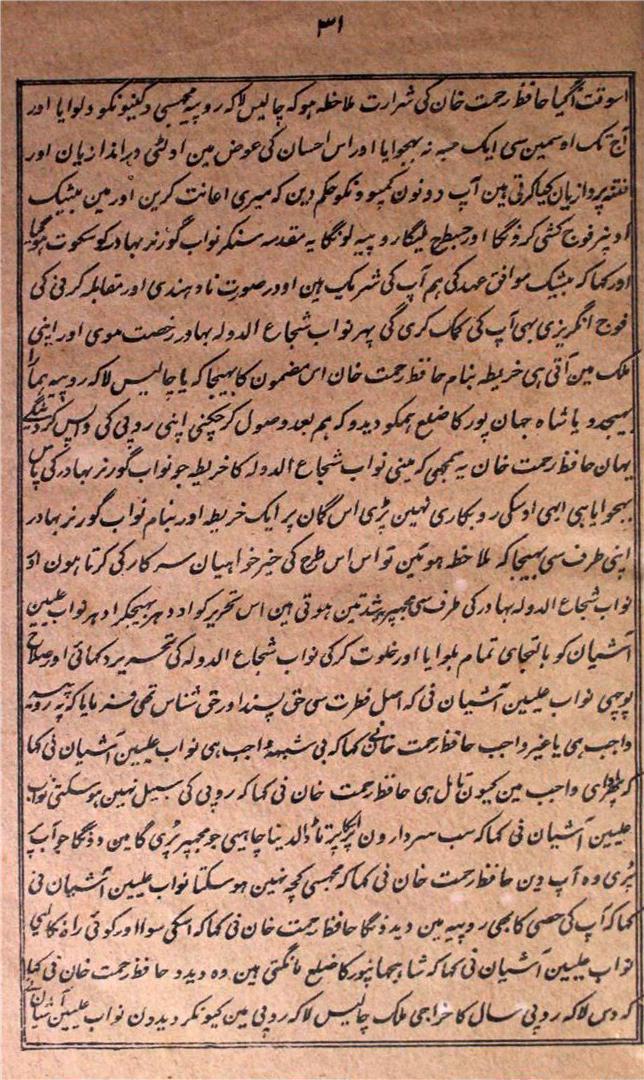 ۳۱
اسوقت آگیا حافظ رحمت خان کی شرارت ملاحظہ ہو کہ چالیس لاکہ روپیہ مجہسی دکنیونکو دلوایا اور
آج تک اوسمین سی ایک حبہ نہ بہجوایا اور اس احسان کی عوض مین اولٹی دراندازیان اور
فتنہ پردازیان کیا کرتی ہین آپ دونون کمپونکو حکم دین کہ میری اعانت کرین اور مین بیشک
اونپر فوج کشی کرونگا اور جسطرح ملیگا روپیہ لونگا یہ مقدمہ سنکر نواب گورنر بہادر کو سکوت ہوگیا
اور کہا کہ بیشک موافق عہد کی ہم آپ کی شریک ہین اور در صورت نادہندی اور مقابلہ کرنی کی
فوج انگریزی بہی آپ کی کمک کری گی پہر نواب شجاع الدولہ بہادر رخصت ہوی اور اپنی
ملک مین آتی ہی خریطہ بنام حافظ رحمت خان اس مضمون کا بہیجا کہ یا چالیس لاکہ روپیہ ہمارا
بہیجدو یا شاہ جہان پور کا ضلع ہمکو دیدو کہ ہم بعد وصول کر چکنی اپنی روپی کی واپس کردینگے
یہان حافظ رحمت خان یہ سمجہی کہ مینی نواب شجاع الدولہ کا خریطہ جو نواب گورنر بہادر کی پاس
بہجوایا ہی ابہی اوسکی روبکاری نہین پڑی اس گمان پر ایک خریطہ اور بنام نواب گورنر بہادر
اپنی طرف سی بہیجا کہ ملاحظہ ہو مین تو اس اس طرح کی خیر خواہیان سرکار کی کرتا ہون اور
نواب شجاع الدولہ بہادر کی طرف سی مجہپر شدتین ہوتی ہین اس تحریر کو اودہر بہیجکر ادہر نواب علیین
آشیان کو بالتجای تمام بلوایا اور خلوت کر کی نواب شجاع الدولہ کی تحریر دکہائی اور صلاح
پوچہی نواب علیین آشیان نی کہ اصل فطرت سی حق پسند اور حق شناس تہی فرمایا کہ یہ روپیہ
واجب ہی یا غیر واجب حافظ رحمت خان نی کہا کہ بی شبہہ واجب ہی نواب علیین آشیان نی کہا
کہ پہر ادای واجب مین کیون تامل ہی حافظ رحمت خان نی کہا کہ روپی کی سبیل نہین ہوسکتی نواب
علیین آشیان نی کہا کہ سب سردارون پر ڈالدینا چاہیی جو مجہپر پڑی گا مین دونگا جو آپ پر
پڑی وہ آپ دین حافظ رحمت خان نی کہا کہ مجہسی کچہ نہین ہوسکتا نواب علیین آشیان نی
کہا کہ آپ کی حصی کا بہی روپیہ مین دیدونگا حافظ رحمت خان نی کہا کہ اسکی سوا اور کوئی راہ نکالیی
نواب علیین آشیان نی کہا کہ شاہجہانپور کا ضلع مانگتی ہین وہ دیدو حافظ رحمت خان نی کہا
کہ دس لاکہ روپی سال کا خراجی ملک چالیس لاکہ روپی مین کیونکر دیدون نواب علیین آشیان نے